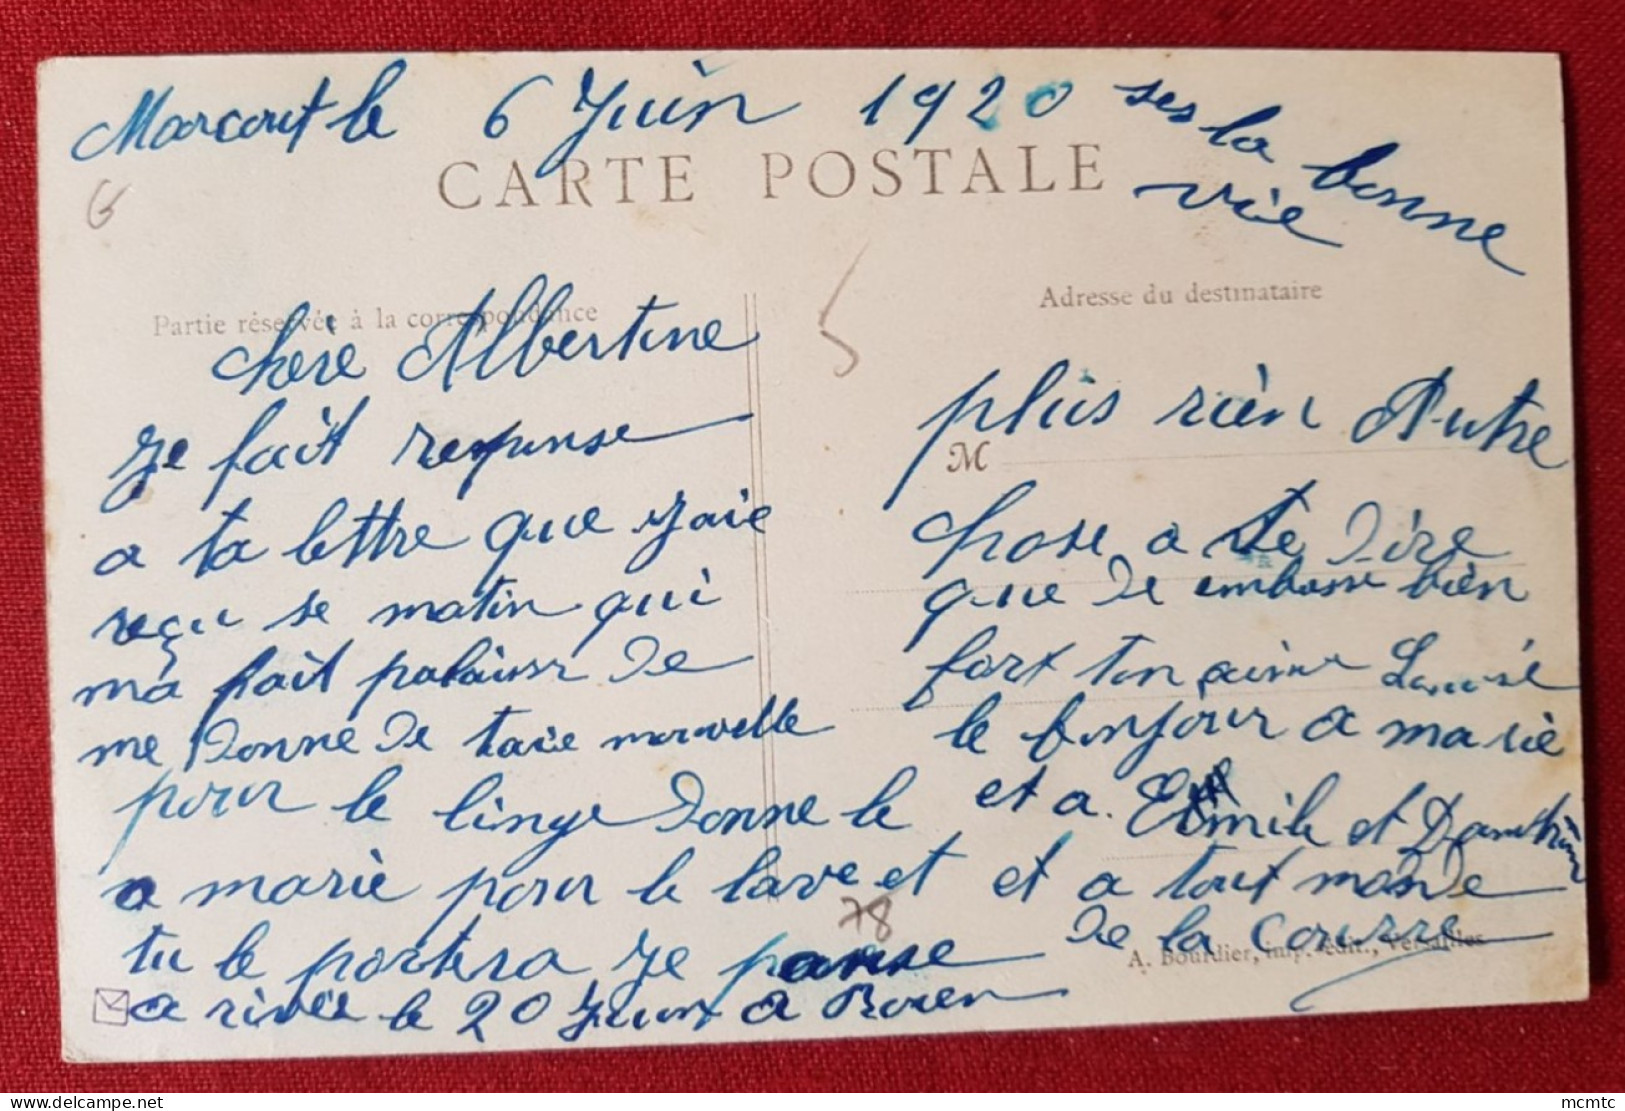 Marcout le 6 Juin 1920 ses la bonne
vie
CARTE POSTALE
Partie réservée à la correspondance
Adresse du destinataire
chère Albertine
Je fait reponse
a ta lettre que Jaie
reçu se matin qui
ma fait palaisir de
me donne de taie
pour le linge donne le
a marie pour le lave et
tu le portera Je panse
a rivée le 20 Juin a Rouen
plus rièn Autre
M
chose a te dire
que de embasse bièn
fort ton aime Louise
le bonjour a marie
et a Emile et
et a tout monde
de la Courre
A. Bourdier, imp.-édit., Versailles
78
mcmtc